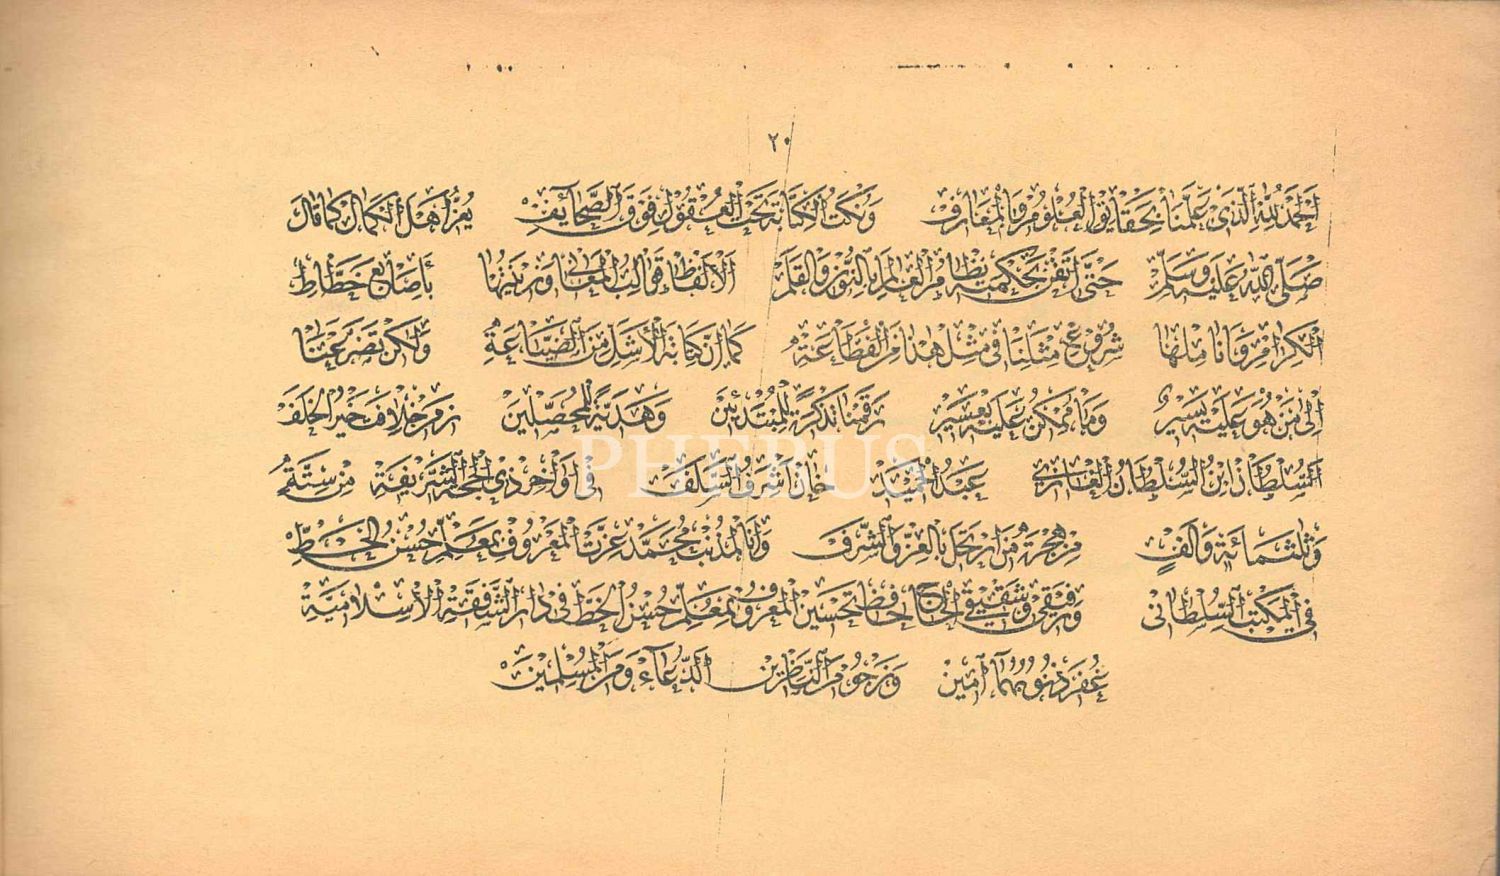 ٢٠
الحمد لله الذي علمنا بحقايق العلوم والمعارف ونكت الكتابة تحت العقول فوق الصحايف يعز اهل الكمال كما قال
صلى الله عليه وسلم حتى اتقن بحكمته نظام العالم بالنون والقلم الالفاظ قوالب المعاني وزينها باصابع خطاط
الكرام وانا منلها شروع مثلنا في مثل هذا من الفظاعة كما ان كتابة الأشل من الضياعة ولكن تضرعنا
الى من هو عليه يسير وما يمكن عليه بعسير رقمنا تذكرة للمبتدئين وهدية للمحصلين زمن خلافت خير الخلف
السلطان ابن السلطان الغازي عبد الحميد خان اشرف السلف في اواخر ذي الحجة الشريفة من ستة
وثلثمائة والف من هجرة من ارتحل بالعز والشرف وانا المذنب محمد عزت المعروف بمعلم حسن الخط
في المكتب السلطاني ورفيقي وشقيقي الحاج حافظ تحسين المعروف بمعلم حسن الخط في دار الشفقة الاسلامية
غفر ذنوبهما آمين ونرجو من الناظرين الدعاء ومن المسلمين
PHEBUS